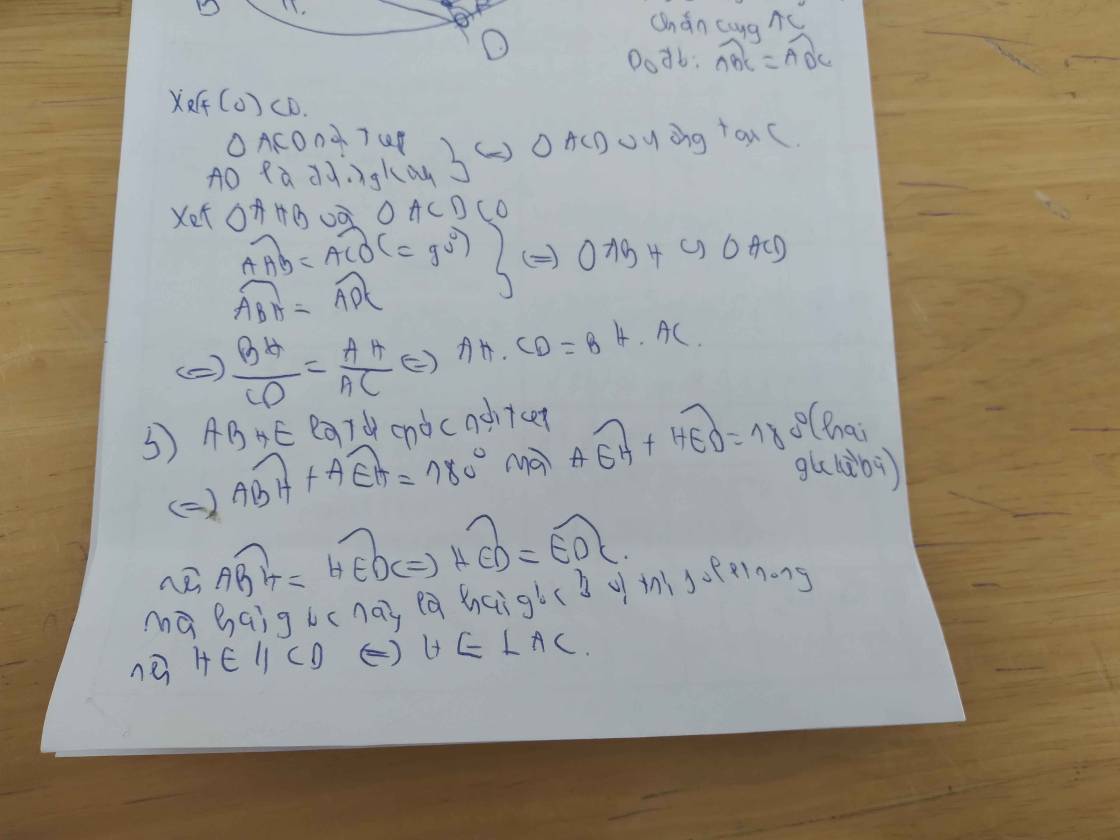 B
D
Chắn cung AC
Do đó: ABC = ADC
Xét (O) có.
Δ ACD nội tiếp
AD là đường kính
⇔ Δ ACD vuông tại C.
Xét Δ AHB và Δ ACD có
AHB = ACD (= 90°)
ABH = ADC
⇔ Δ ABH ∽ Δ ACD
⇔ BH/CD = AH/AC ⇔ AH.CD = BH.AC.
3) ABHE là tứ giác nội tiếp
⇔ ABH + AEH = 180° mà AEH + HED = 180° (hai góc kề bù)
nên ABH = HED ⇔ HED = EDC.
mà hai góc này là hai góc ở vị trí so le trong
nên HE // CD ⇔ HE ⊥ AC.